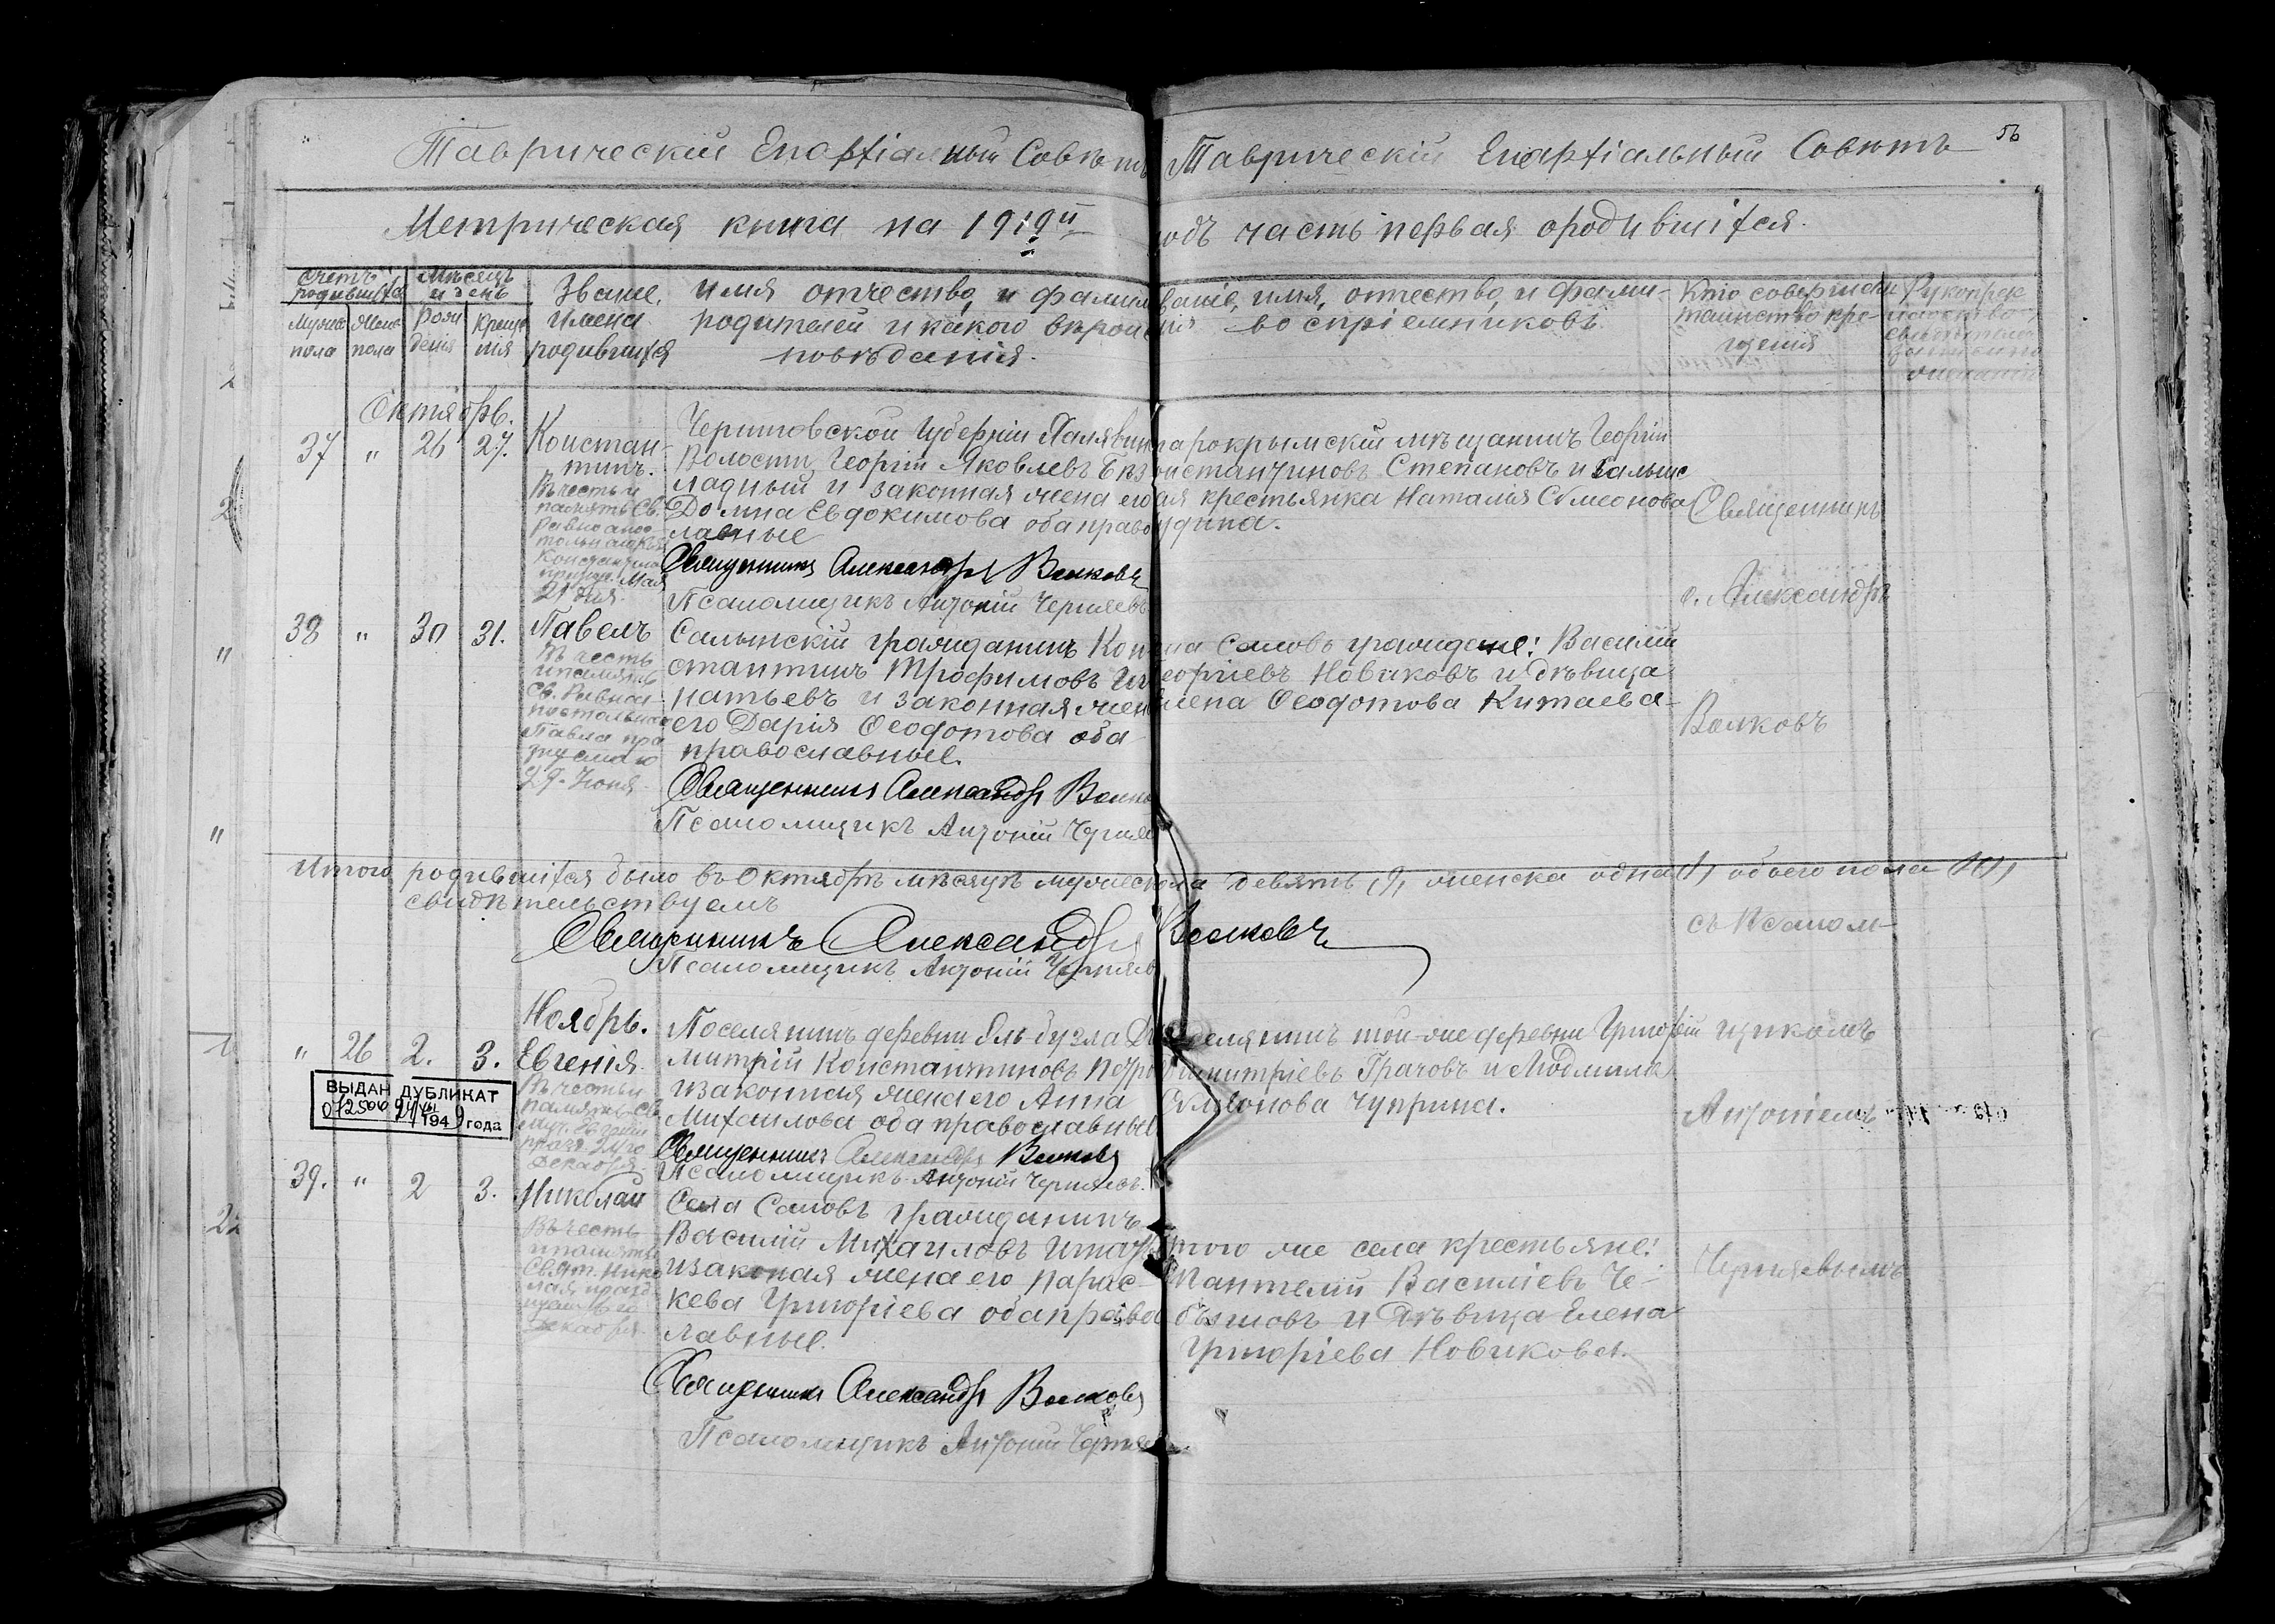 Таврическій Епархіальный Совѣтъ
Таврическій Епархіальный Совѣтъ
56
Метрическая книга на 1919й
одъ часть первая ородившихся.
Счетъ родившихся
Мѣсяцъ и день
Мужес пола
Женс пола
Рожденія
Крещенія
Званіе, имена родившихся
имя отчество, и фамил
родителей и какого вѣрои
повѣданія.
ваніе, имя, отчество, и фами-
лія воспріемниковъ.
Кто совершалъ
таинство кре-
щенія
Октябрь.
37 " 26 27.
Констан-
тинъ.
Въ честь и
память Св.
Равноапос
Константина
Мая
21 дня.
Черниговской Губерніи
Волости, Георгій Яковлевъ Без
ладный и законная жена его
Домна Евдокимова оба право
лавные
Священникъ Александръ Волковъ
Псаломщикъ Антоній Черняевъ
арокрымскій мѣщанинъ Георгій
онстантиновъ Степановъ и
ая крестьянка Наталья Сѵмеонова
Священникъ
о. Александръ
38 " 30 31.
Павелъ
Въ честь
и память
Св.
Павла
29 Іюня
Салынскій гражданинъ Кон
стантинъ Трофимовъ Иг
натьевъ и законная жен
его Дарія Ѳеодотова оба
православные.
Священникъ Александръ Волко
Псаломщикъ Антоній Черняе
ла Саловъ граждане: Василій
еоргіевъ Новиковъ и дѣвица
лена Ѳеодотова Китаева
Волковъ
Итого родившихся было въ Октябрѣ мѣсяцѣ мужеск пола девять /9/, женска одна /1/ обоего пола /10/,
свидѣтельствуемъ
Священникъ Александръ Волковъ
Псаломщикъ Антоній Черняев
съ Псалом-
Ноябрь.
" 26 2. 3.
Евгенія.
Въ честь и
память Св.
муч. Евгеніи
Декабря
Поселянинъ деревни Эль-бузла Ди
митрій Константиновъ
и законная жена его Анна
Михаилова оба православные
Священникъ Александръ Волковъ
Псаломщикъ Антоній Черняевъ.
оселянинъ той-же деревни Григорій
имитріевъ Грачовъ и Людмила
Сѵмеонова Чуприна.
щикомъ
Антоніемъ
ВЫДАН ДУБЛИКАТ
194 9 года
39. " 2 3.
Николай
Въ честь
и память
Свят. Нико
лая
Декабря
Села Саловъ гражданинъ
Василій Михаиловъ
и законая жена его Парас-
кева Григоріева оба право
лавные.
Священникъ Александръ Волковъ
Псаломщикъ Антоній Черня
того же села крестьяне:
Пантелій Василіевъ Че-
бышовъ и дѣвица Елена
Григоріева Новикова.
Черняевымъ